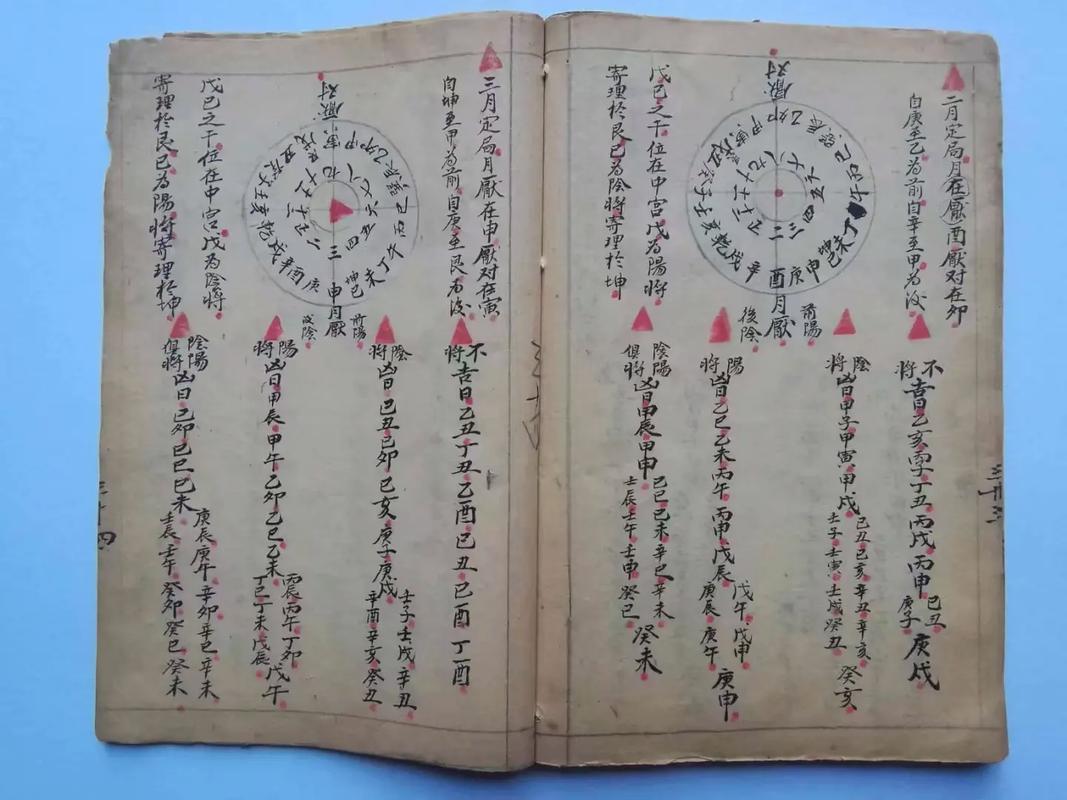 二月定局月在厭酉厭对在卯
自庚至乙為前自辛至甲為後
厭对
戊己之干位在中宮戊為陽將
寄理於艮己為陰將寄理於坤
酉月厭
前陽
後陰
不將吉日乙亥丙子丁丑丙戌丙申己丑庚子庚戌
陰將凶日甲子甲寅甲戌己丑己亥辛丑辛亥壬子壬寅壬戌癸丑癸亥
陽將凶日乙巳乙未丙午丙申戊辰戊午戊申庚辰庚午庚申
陰陽俱將凶日甲辰甲申己巳己未辛巳辛未壬辰壬午壬申癸巳癸未
三十三
三月定局月厭在申厭对在寅
自坤至甲為前自庚至艮為後
厭对
戊己之干位在中宮戊為陰將
寄理於艮己為陽將寄理於坤
申月厭
前陽
後陰
不將吉日乙丑丁丑乙酉己丑己酉丁酉
陰將凶日己丑己卯己亥庚子庚戌壬子壬戌辛丑辛酉辛亥癸丑
陽將凶日甲辰甲午乙卯乙巳乙未丙午丁卯丁巳丁未戊辰戊午
陰陽俱將凶日己卯己巳己未庚辰庚午辛卯辛巳辛未壬辰壬午癸卯癸巳癸未
三十四